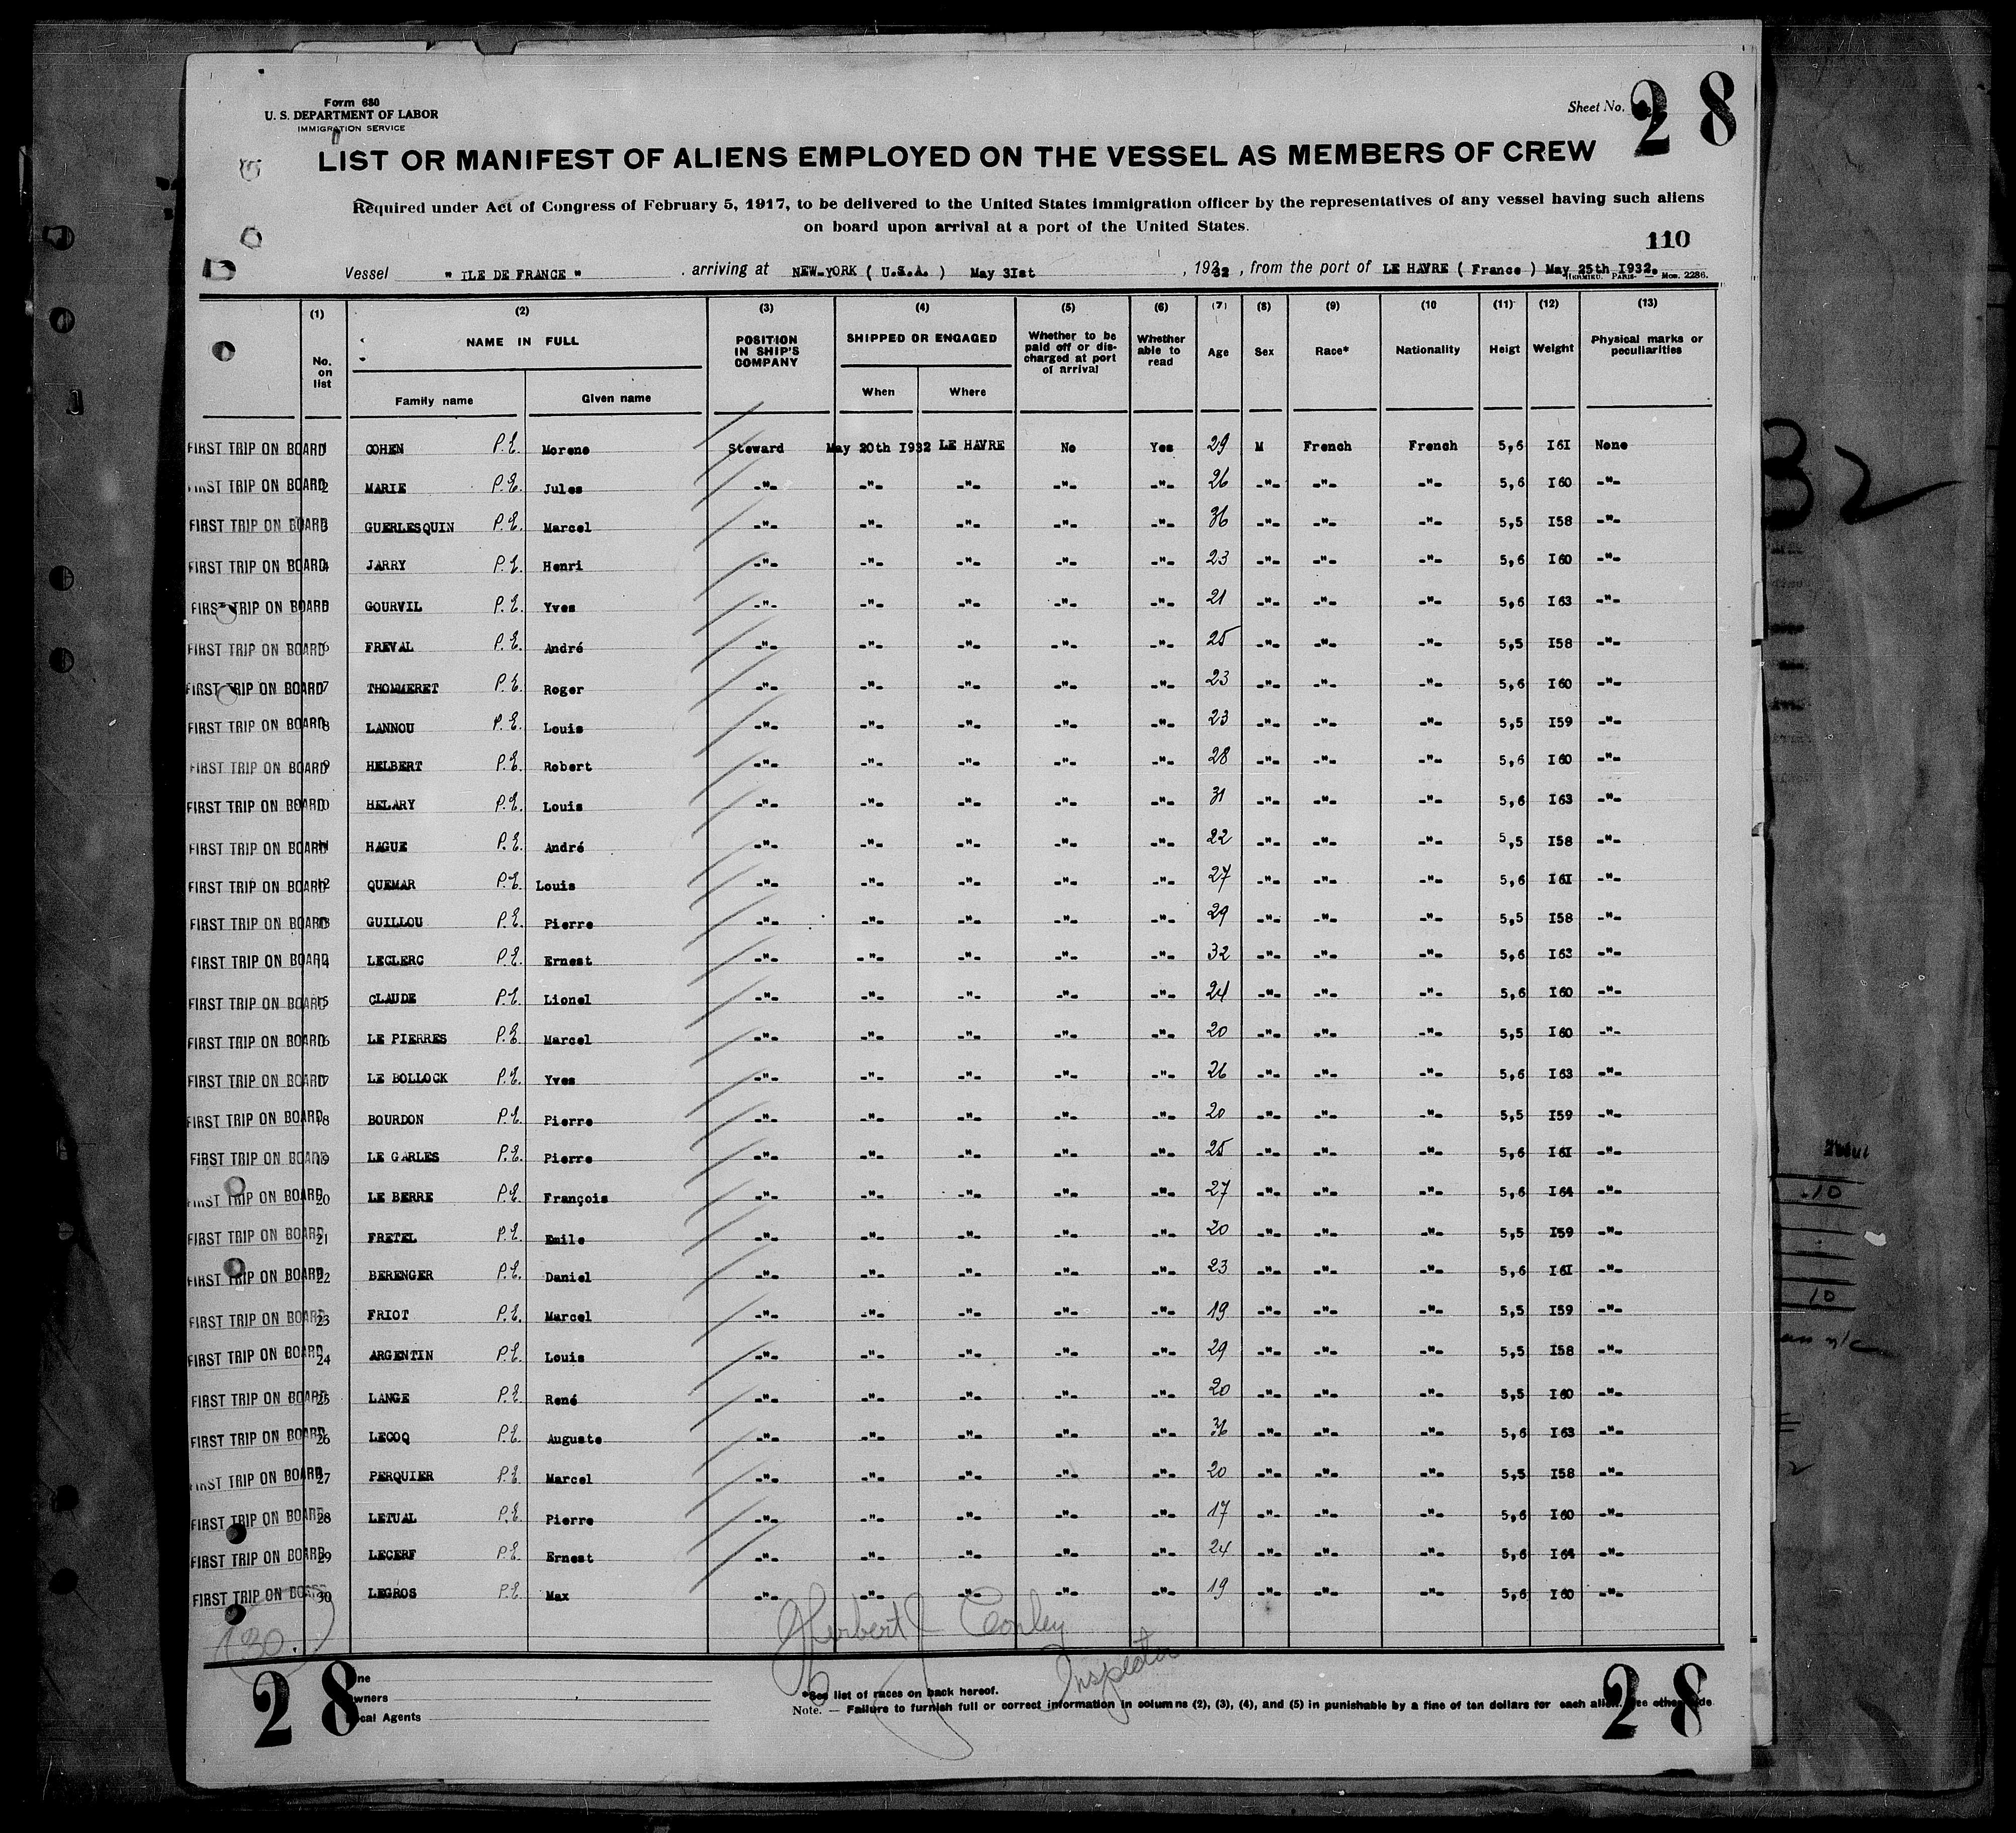 Form 680
U. S. DEPARTMENT OF LABOR
IMMIGRATION SERVICE
Sheet No. 28
LIST OR MANIFEST OF ALIENS EMPLOYED ON THE VESSEL AS MEMBERS OF CREW
Required under Act of Congress of February 5, 1917, to be delivered to the United States immigration officer by the representatives of any vessel having such aliens
on board upon arrival at a port of the United States.
110
Vessel " ILE DE FRANCE " , arriving at NEW-YORK ( U.S.A. ) May 3Ist , 1932 , from the port of LE HAVRE ( France ) May 25th I932.
HERMIEU. PARIS — Mos. 2286.
(1) (2) (3) (4) (5) (6) (7) (8) (9) (10 (11) (12) (13)
No. on list NAME IN FULL POSITION IN SHIP'S COMPANY SHIPPED OR ENGAGED Whether to be paid off or discharged at port of arrival Whether able to read Age Sex Race* Nationality Heigt Weight Physical marks or peculiarities
Family name Given name When Where
FIRST TRIP ON BOARD 1 COHEN P.E. Morene Steward May 20th I932 LE HAVRE No Yes 29 M French French 5,6 I6I None
FIRST TRIP ON BOARD 2 MARIE P.E. Jules -"- -"- -"- -"- -"- 26 -"- -"- -"- 5,6 I60 -"-
FIRST TRIP ON BOARD 3 GUERLESQUIN P.E. Marcel -"- -"- -"- -"- -"- 36 -"- -"- -"- 5,5 I58 -"-
FIRST TRIP ON BOARD 4 JARRY P.E. Henri -"- -"- -"- -"- -"- 23 -"- -"- -"- 5,6 I60 -"-
FIRST TRIP ON BOARD GOURVIL P.E. Yves -"- -"- -"- -"- -"- 21 -"- -"- -"- 5,6 I63 -"-
FIRST TRIP ON BOARD 6 FREVAL P.E. André -"- -"- -"- -"- -"- 25 -"- -"- -"- 5,5 I58 -"-
FIRST TRIP ON BOARD 7 THOMMERET P.E. Roger -"- -"- -"- -"- -"- 23 -"- -"- -"- 5,6 I60 -"-
FIRST TRIP ON BOARD 8 LANNOU P.E. Louis -"- -"- -"- -"- -"- 23 -"- -"- -"- 5,5 I59 -"-
FIRST TRIP ON BOARD 9 HELBERT P.E. Robert -"- -"- -"- -"- -"- 28 -"- -"- -"- 5,6 I60 -"-
FIRST TRIP ON BOARD 10 HELARY P.E. Louis -"- -"- -"- -"- -"- 31 -"- -"- -"- 5,6 I63 -"-
FIRST TRIP ON BOARD 11 HAGUE P.E. André -"- -"- -"- -"- -"- 22 -"- -"- -"- 5,5 I58 -"-
FIRST TRIP ON BOARD 12 QUEMAR P.E. Louis -"- -"- -"- -"- -"- 27 -"- -"- -"- 5,6 I6I -"-
FIRST TRIP ON BOARD 13 GUILLOU P.E. Pierre -"- -"- -"- -"- -"- 29 -"- -"- -"- 5,5 I58 -"-
FIRST TRIP ON BOARD 14 LECLERC P.E. Ernest -"- -"- -"- -"- -"- 32 -"- -"- -"- 5,6 I63 -"-
FIRST TRIP ON BOARD 15 CLAUDE P.E. Lionel -"- -"- -"- -"- -"- 24 -"- -"- -"- 5,6 I60 -"-
FIRST TRIP ON BOARD 16 LE PIERRES P.E. Marcel -"- -"- -"- -"- -"- 20 -"- -"- -"- 5,5 I60 -"-
FIRST TRIP ON BOARD 17 LE BOLLOCK P.E. Yves -"- -"- -"- -"- -"- 26 -"- -"- -"- 5,6 I63 -"-
FIRST TRIP ON BOARD 18 BOURDON P.E. Pierre -"- -"- -"- -"- -"- 20 -"- -"- -"- 5,5 I59 -"-
FIRST TRIP ON BOARD 19 LE GARLES P.E. Pierre -"- -"- -"- -"- -"- 25 -"- -"- -"- 5,6 I6I -"-
FIRST TRIP ON BOARD 20 LE BERRE P.E. François -"- -"- -"- -"- -"- 27 -"- -"- -"- 5,6 I64 -"-
FIRST TRIP ON BOARD 21 FRETEL P.E. Emile -"- -"- -"- -"- -"- 20 -"- -"- -"- 5,5 I59 -"-
FIRST TRIP ON BOARD 22 BERENGER P.E. Daniel -"- -"- -"- -"- -"- 23 -"- -"- -"- 5,6 I6I -"-
FIRST TRIP ON BOARD 23 FRIOT P.E. Marcel -"- -"- -"- -"- -"- 19 -"- -"- -"- 5,5 I59 -"-
FIRST TRIP ON BOARD 24 ARGENTIN P.E. Louis -"- -"- -"- -"- -"- 29 -"- -"- -"- 5,5 I58 -"-
FIRST TRIP ON BOARD 25 LANGE P.E. René -"- -"- -"- -"- -"- 20 -"- -"- -"- 5,5 I60 -"-
FIRST TRIP ON BOARD 26 LECOQ P.E. Auguste -"- -"- -"- -"- -"- 36 -"- -"- -"- 5,6 I63 -"-
FIRST TRIP ON BOARD 27 PERQUIER P.E. Marcel -"- -"- -"- -"- -"- 20 -"- -"- -"- 5,5 I58 -"-
FIRST TRIP ON BOARD 28 LETUAL P.E. Pierre -"- -"- -"- -"- -"- 17 -"- -"- -"- 5,6 I60 -"-
FIRST TRIP ON BOARD 29 LECERF P.E. Ernest -"- -"- -"- -"- -"- 24 -"- -"- -"- 5,6 I64 -"-
FIRST TRIP ON BOARD 30 LEGROS P.E. Max -"- -"- -"- -"- -"- 19 -"- -"- -"- 5,6 I60 -"-
30.
Herbert J Conley
Inspector
28 28
Owners
Local Agents
*See list of races on back hereof.
Note. — Failure to furnish full or correct information in columns (2), (3), (4), and (5) in punishable by a fine of ten dollars for each alien. See other side
32
.10
10